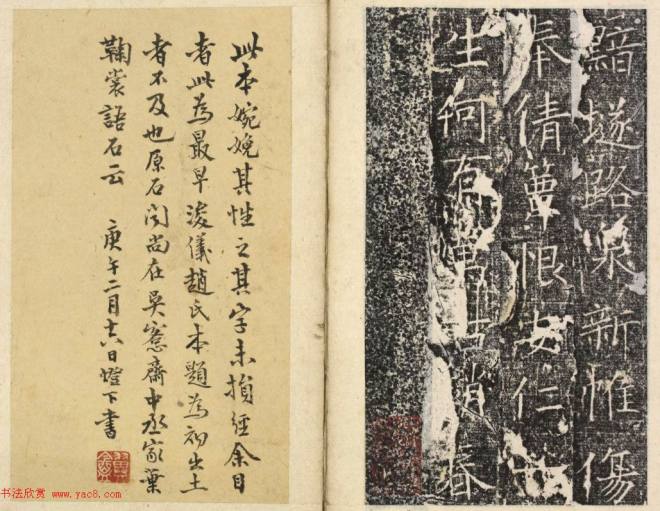 路新帷傷
奉倩簟恨安仁
生何有春
此本婉娩其性之其字未損經余目
者此為最早浚儀趙氏本題為初出土
者不及也原石聞尚在吳愙齋中丞家葉
鞠裳語石云 庚午二月十六日燈下書
书法欣赏 www.yac8.com